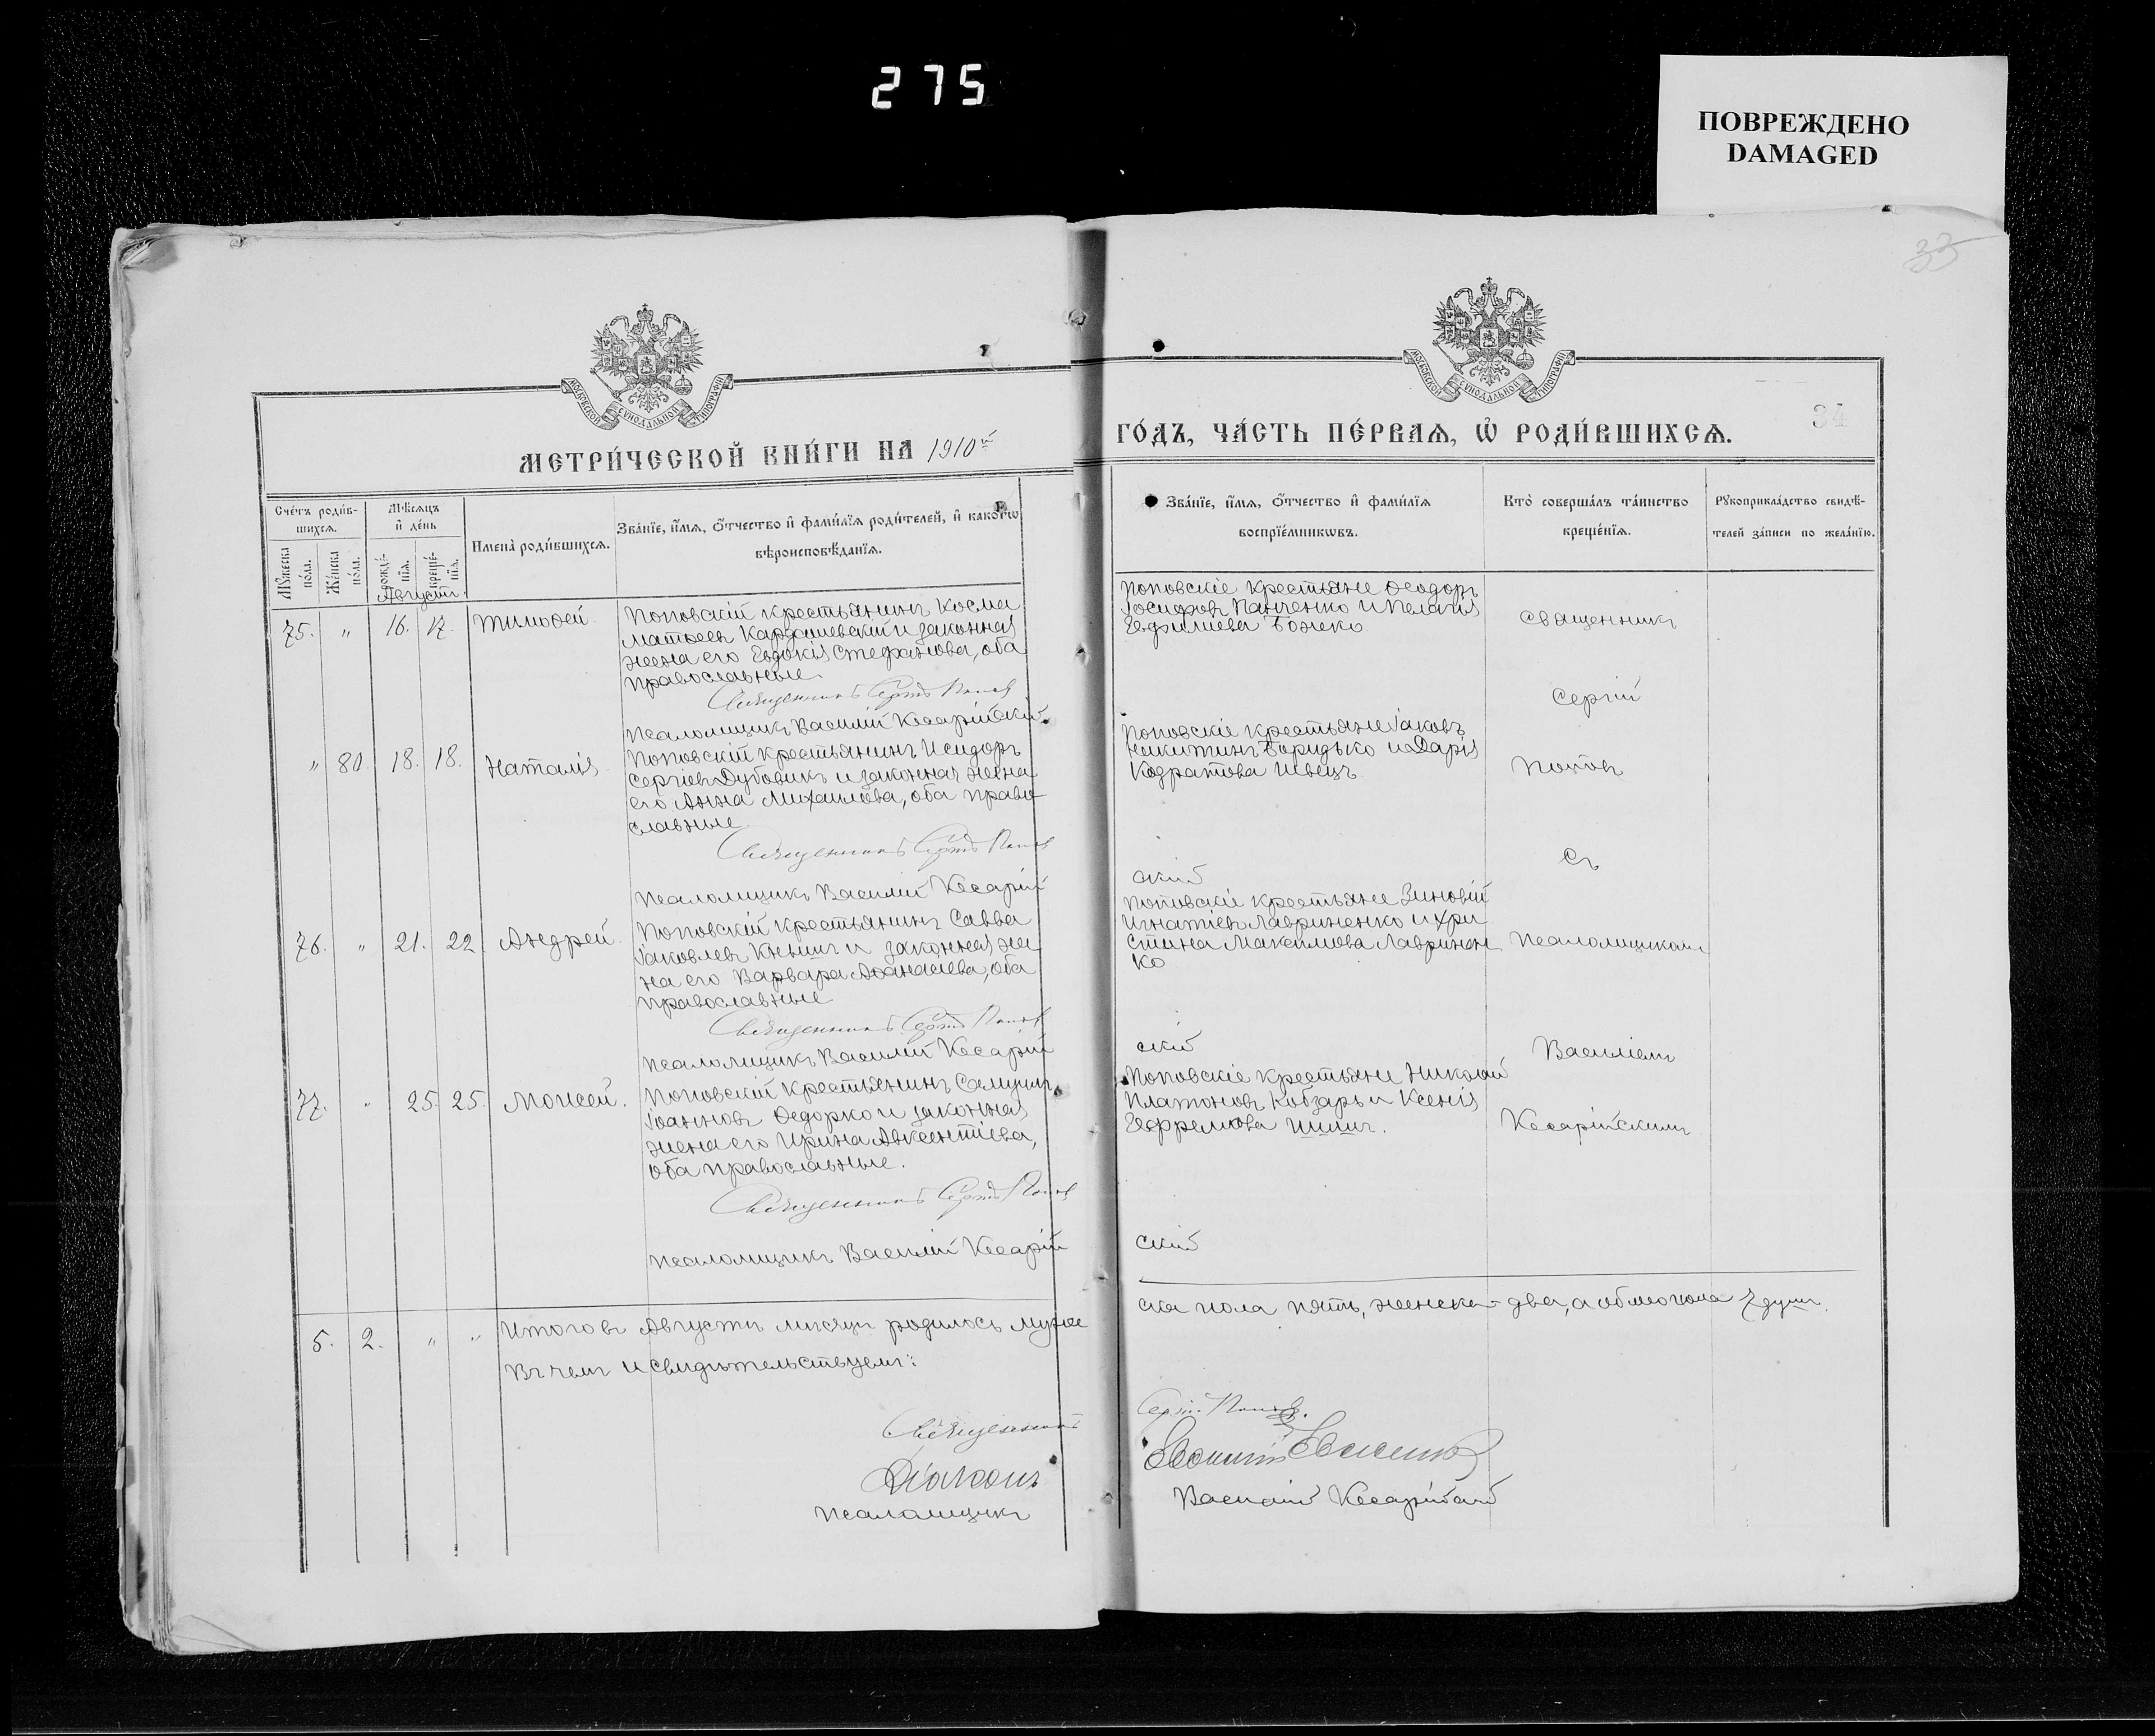 275
ПОВРЕЖДЕНО
DAMAGED
33
34
МОСКОВСКОЙ СѴНОДАЛЬНОЙ ТИПОГРАФІИ
МОСКОВСКОЙ СѴНОДАЛЬНОЙ ТИПОГРАФІИ
МЕТРИ́ЧЕСКОЙ КНИ́ГИ НА 1910й
ГО́ДЪ, ЧА́СТЬ ПЕ́РВАѦ, Ѡ РОДИ́ВШИХСѦ.
Сче́тъ роди́в-
шихсѧ.
Мꙋжеска по́ла.
Же́нска по́ла.
Мѣ́сѧцъ
и҆ де́нь
рожде́-
нїѧ.
креще́-
нїѧ.
И҆мена̀ роди́вшихсѧ.
Зва́нїе, и҆́мѧ, ѻ҆́тчество и҆ фами́лїѧ роди́телей, и҆ како́гѡ
вѣроисповѣ́данїѧ.
Зва́нїе, и҆́мѧ, ѻ҆́тчество и҆ фами́лїѧ
воспрїе́мникѡвъ.
Кто̀ соверша́лъ та́инство
креще́нїѧ.
Рꙋкоприкла́дство свидѣ́-
телей за́писи по жела́нїю.
Августъ
75. " 16. 17. Тимоѳей.
Поповскій крестьянинъ Косма
Матѳеевъ Кардашевскій и законная
жена его Евдокія Стефанова, оба
православные.
Священникъ Сергій Попов
Псаломщикъ Василій Кесарійскій
Поповскіе крестьяне Ѳеодоръ
Іосифовъ Панченко и Пелагія
Евфиміева Божко
Священникъ
Сергій
" 80. 18. 18. Наталія.
Поповскій крестьянинъ Исидоръ
Сергіевъ Дубовикъ и законная жена
его Анна Михаилова, оба право
славные
Священникъ Сергій Попов
Псаломщикъ Василій Кесарій
Поповскіе крестьяне Іаковъ
Никитинъ Боридько и Дарія
Кодратова Швецъ
Поповъ
Съ
скій
76. " 21. 22. Андрей.
Поповскій крестьянинъ Савва
Іаковлевъ Книшъ и законная же
на его Варвара Аѳанасіева, оба
православные
Священникъ Сергій Попов
Псаломщикъ Василій Кесарій
Поповскіе крестьяне Зиновій
Игнатіевъ Лавриненко и Хри
стина Максимова Лавринен
ко
Псаломщикомъ
скій
Василіемъ
77. " 25. 25. Моисей.
Поповскій крестьянинъ Самуилъ
Іоанновъ Ѳедорко и законная
жена его Ирина Авксентіева,
оба православные.
Священникъ Сергій Попов
Псаломщикъ Василій Кесарій
Поповскіе крестьяне Николай
Платоновъ Кобзарь и Ксенія
Ефремова Шишъ.
Кесарійскимъ
скій
5. 2. " " Итого въ Августѣ мѣсяцѣ родилось муже
ска пола пять, женска - два, а обоего пола 7 душъ.
Въ чемъ и свидѣтельствуемъ:
Священникъ
Сергій Поповъ.
Діаконъ
Псаломщикъ
Василій Кесарійскій